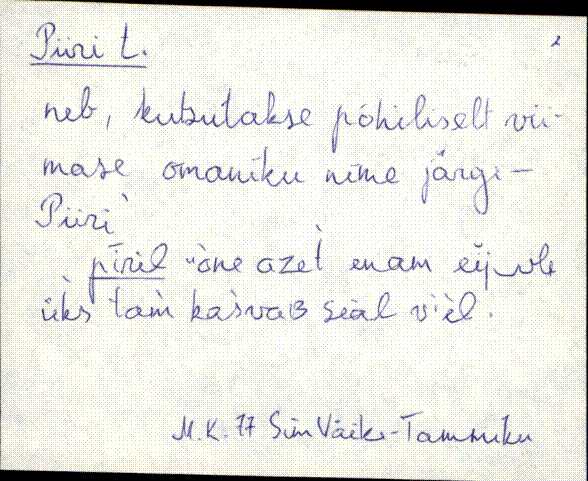 Piiri t. 2
neb, kutsutakse põhiliselt vii-
mase omaniku nime järgi -
Piiri
pīril òne azet enam eij ole
üks tam̀ kàsvaʙ seàl vièl.
M.K. 77 Sim Väike-Tammiku